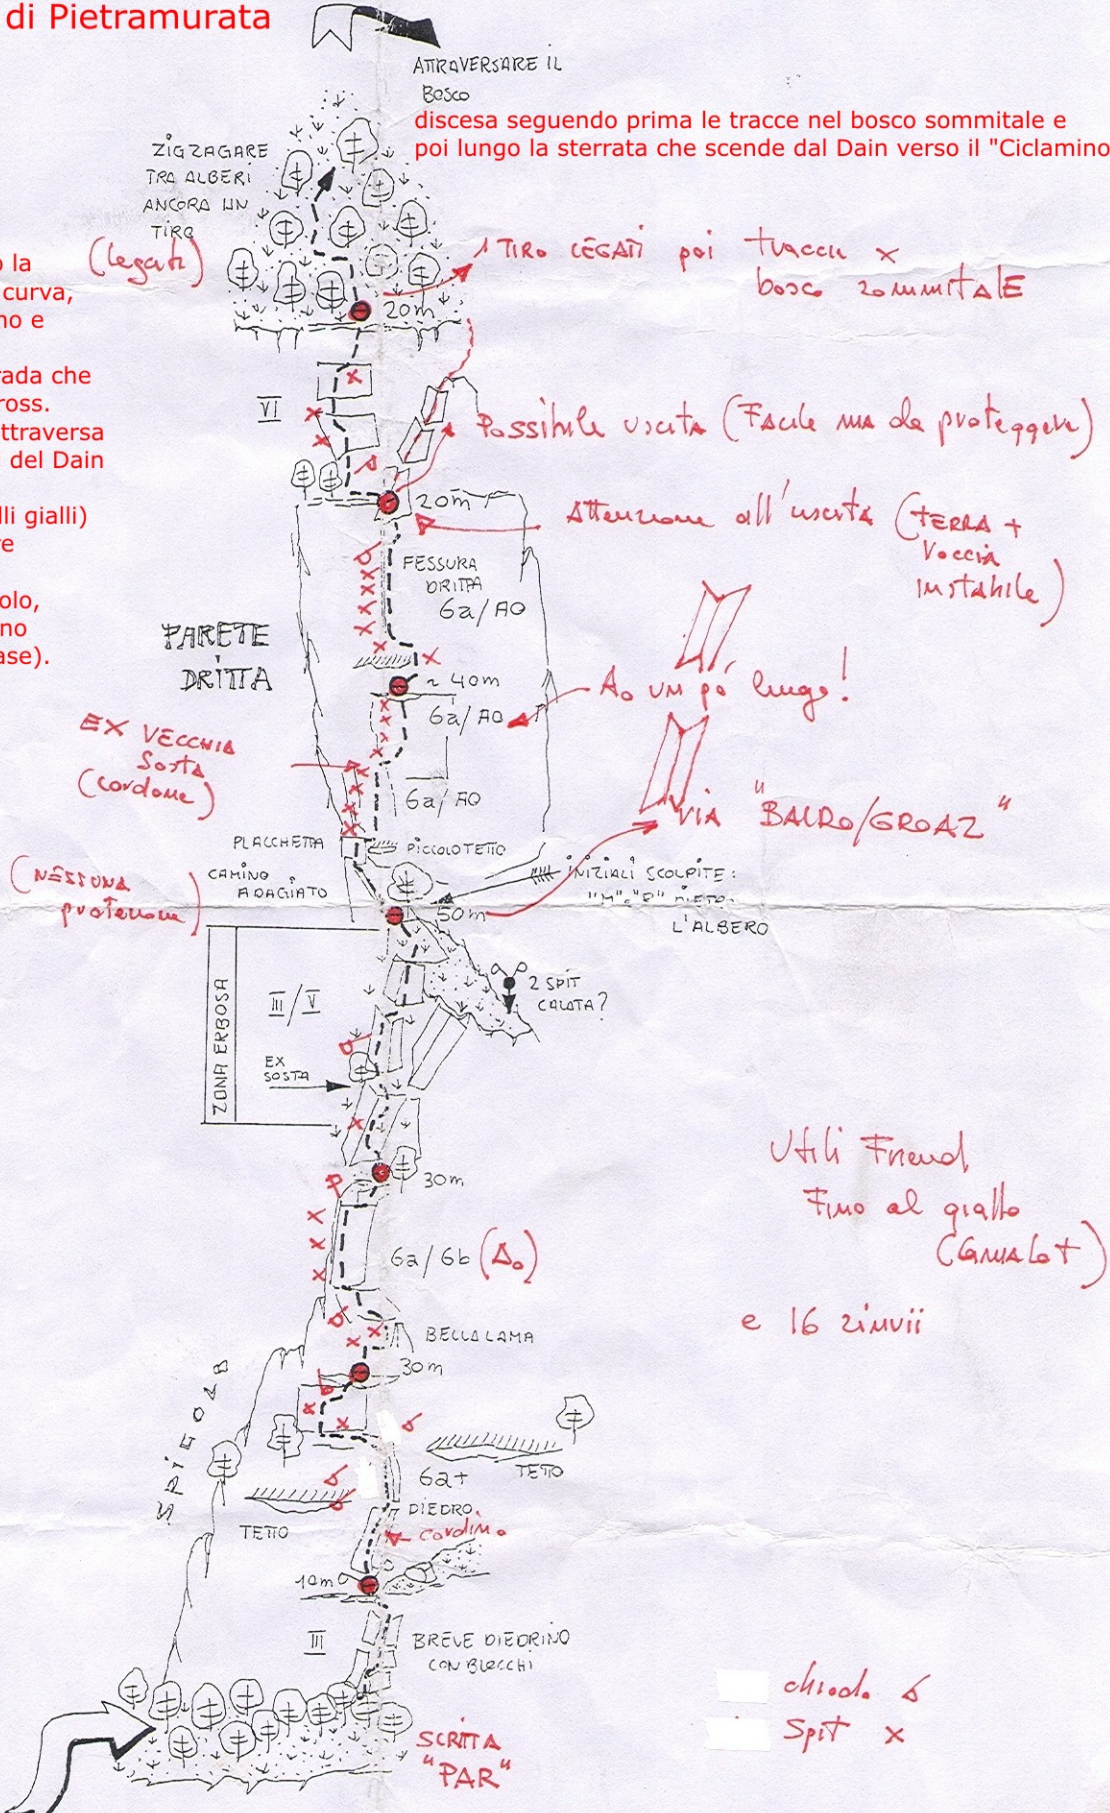 di Pietramurata
ATTRAVERSARE IL
BOSCO
discesa seguendo prima le tracce nel bosco sommitale e
poi lungo la sterrata che scende dal Dain verso il "Ciclamino
ZIGZAGARE
TRA ALBERI
ANCORA UN
TIRO
(legati)
1 TIRO LEGATI poi traccia x
bosco sommitale
20m
la
curva,
no e
rada che
ross.
ttraversa
del Dain
lli gialli)
re
olo,
no
ase).
VI
Possibile uscita (Facile ma da proteggere)
20m
Attenzione all'uscita (TERRA +
roccia
instabile)
FESSURA
DRITTA
6a/A0
PARETE
DRITTA
~ 40m
6a/A0
Ao un pò lungo!
EX VECCHIA
Sosta
(cordone)
6a/A0
VIA "BALRO/GROAZ"
PLACCHETTA
PICCOLO TETTO
(NESSUNA
protezione)
CAMINO
ADAGIATO
INIZIALI SCOLPITE:
L'ALBERO
50m
ZONA ERBOSA
III/V
2 SPIT
CALATA?
EX
SOSTA
30m
Utili Friend
Fino al giallo
(Camalot)
6a/6b (Ao)
e 16 rinvii
BELLA LAMA
30m
SPIGOLO
6a+
TETTO
TETTO
DIEDRO
cordino
10m
III
BREVE DIEDRINO
CON BLOCCHI
chiodo
Spit x
SCRITTA
"PAR"